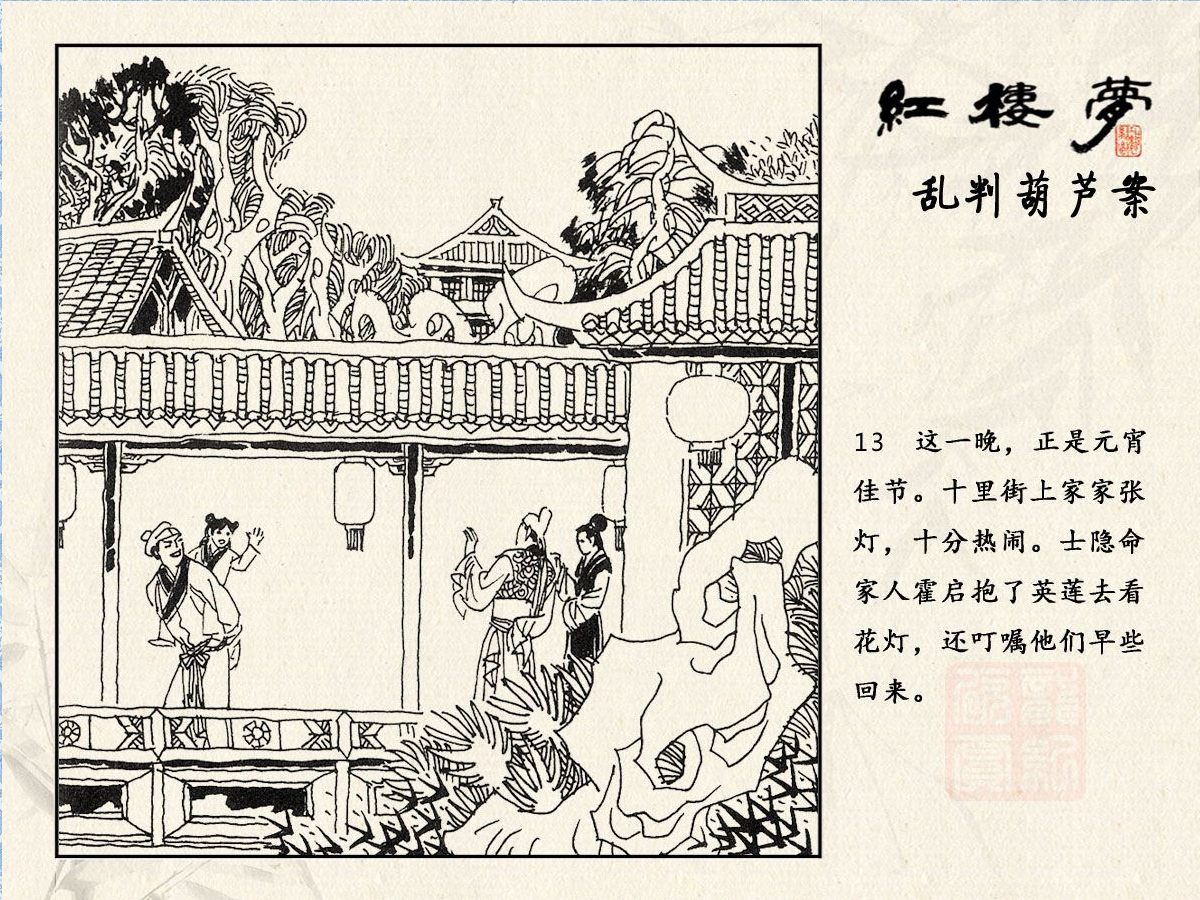 紅樓夢
乱判葫芦案
13 这一晚，正是元宵
佳节。十里街上家家张
灯，十分热闹。士隐命
家人霍启抱了英莲去看
花灯，还叮嘱他们早些
回来。